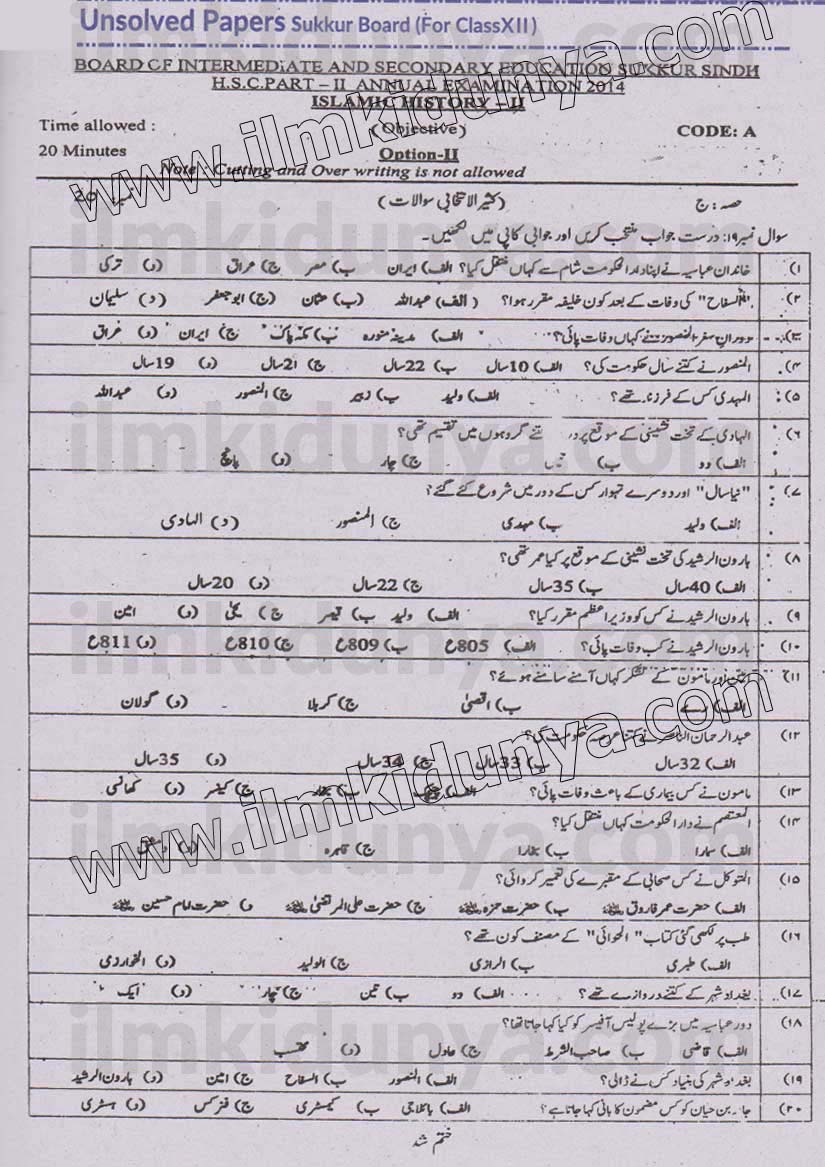 Unsolved Papers Sukkur Board (For ClassXII)
BOARD OF INTERMEDIATE AND SECONDARY EDUCATION SUKKUR SINDH
H.S.C.PART – II ANNUAL EXAMINATION 2014
ISLAMIC HISTORY – II
Time allowed : (Objective) CODE: A
20 Minutes Option-II
Note: Cutting and Over writing is not allowed
حصہ : ج (کثیر الانتخابی سوالات) نمبر 20
سوال نمبر ۱۹: درست جواب منتخب کریں اور جوابی کاپی میں لکھیں۔
۱) خاندان عباسیہ نے اپنا دارالحکومت شام سے کہاں منتقل کیا؟ الف) ایران ب) مصر ج) عراق د) ترکی
۲) "السفاح" کی وفات کے بعد کون خلیفہ مقرر ہوا؟ (الف) عبداللہ (ب) عثمان (ج) ابو جعفر (د) سلیمان
دوران سفر المنصور نے کہاں وفات پائی؟ الف) مدینہ منورہ ب) مکہ پاک ج) ایران د) عراق
۴) المنصور نے کتنے سال حکومت کی؟ الف) 10سال ب) 22سال ج) 21سال د) 19سال
۵) المہدی کس کے فرزند تھے؟ الف) ولید ب) زبیر ج) المنصور د) عبداللہ
۶) الہادی کے تخت نشینی کے موقع پر گروہوں میں تقسیم تھی؟
الف) دو ب) ج) چار د) پانچ
۷) "نیا سال" اور دوسرے تہوار کس کے دور میں شروع کئے گئے؟
الف) ولید ب) مہدی ج) المنصور د) الہادی
۸) ہارون الرشید کی تخت نشینی کے موقع پر کیا عمر تھی؟
الف) 40سال ب) 35سال ج) 22سال د) 20سال
۹) ہارون الرشید نے کس کو وزیر اعظم مقرر کیا؟ الف) ولید ب) قیصر ج) یحیٰ د) امین
۱۰) ہارون الرشید نے کب وفات پائی؟ الف) 805ع ب) 809ع ج) 810ع د) 811ع
۱۱) امین اور مامون کے لشکر کہاں آمنے سامنے ہوئے؟
الف) رے ب) اقصیٰ ج) کربلا د) گولان
۱۲) عبدالرحمان الناصر نے کتنا عرصہ حکومت کی؟
الف) 32سال ب) 33سال ج) 34سال د) 35سال
۱۳) مامون نے کس بیماری کے باعث وفات پائی؟ الف) ب) بخار ج) کینسر د) کھانسی
۱۴) المعتصم نے دارالحکومت کہاں منتقل کیا؟
الف) سمارا ب) بخارا ج) قاہرہ د) دمشق
۱۵) المتوکل نے کس صحابی کے مقبرے کی تعمیر کروائی؟
الف) حضرت عمر فاروق ب) حضرت حمزہ ج) حضرت علی المرتضیٰ د) حضرت امام حسین
۱۶) طب پر لکھی گئی کتاب "الحوائی" کے مصنف کون تھے؟
الف) طبری ب) الرازی ج) الولید د) الخوارزمی
۱۷) بغداد شہر کے کتنے دروازے تھے؟ الف) دو ب) تین ج) چار د) ایک
۱۸) دور عباسیہ میں بڑے پولیس آفیسر کو کیا کہا جاتا تھا؟
الف) قاضی ب) صاحب الشرط ج) عادل د) محتسب
۱۹) بغداد شہر کی بنیاد کس نے ڈالی؟ الف) المنصور ب) السفاح ج) امین د) ہارون الرشید
۲۰) جابر بن حیان کو کس مضمون کا بانی کہا جاتا ہے؟ الف) بائلاجی ب) کیمسٹری ج) فزکس د) ہسٹری
ختم شد
www.ilmkidunya.com
www.ilmkidunya.com
ilmkidunya.com
ilmkidunya.com
ilmkidunya.com
ilmkidunya.com
ilmkidunya.com
ilmkidunya.com